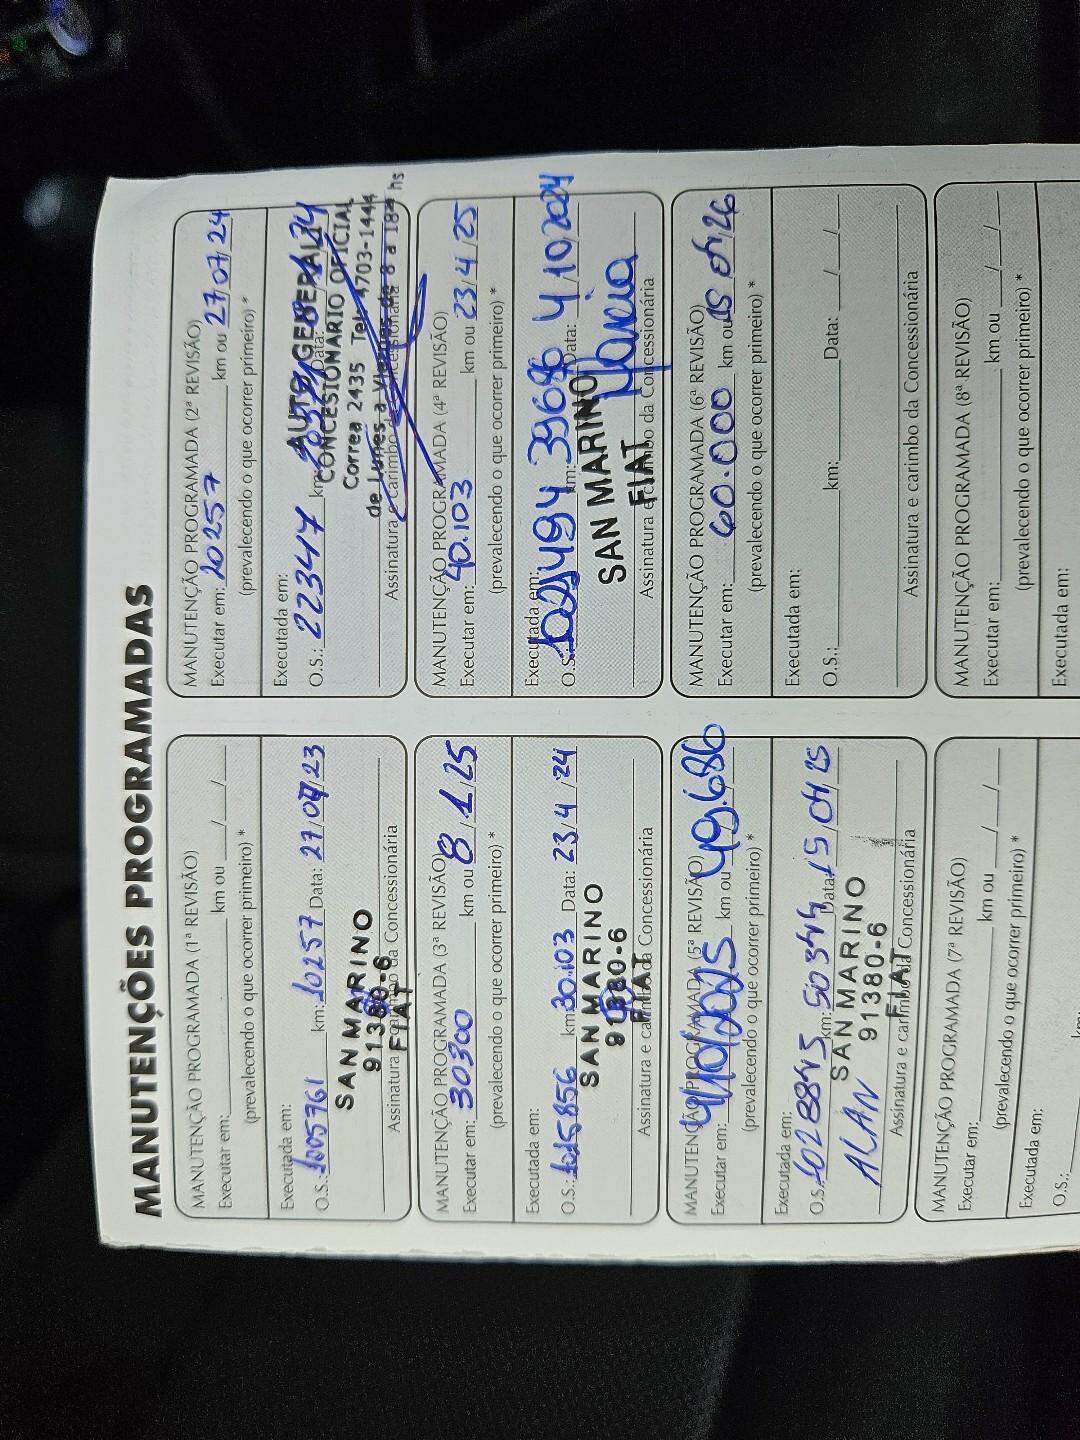 MANUTENÇÕES PROGRAMADAS
MANUTENÇÃO PROGRAMADA (1ª REVISÃO)
Executar em: km ou / /
(prevalecendo o que ocorrer primeiro) *
Executada em:
O.S.: 1005761 km: 10257 Data: 27/07/23
SAN MARINO
91380-6
FIAT
Assinatura e carimbo da Concessionária
MANUTENÇÃO PROGRAMADA (2ª REVISÃO)
Executar em: 20257 km ou 27/07/24
(prevalecendo o que ocorrer primeiro) *
Executada em:
O.S.: 22347 km: Data:
AUTO GENERALI
CONCESIONARIO OFICIAL
Correa 2435 Tel: 4703-1444
de Lunes a Viernes de 8 a 18 hs
Assinatura e carimbo da Concessionária
MANUTENÇÃO PROGRAMADA (3ª REVISÃO)
Executar em: 30300 km ou 8/1/25
(prevalecendo o que ocorrer primeiro) *
Executada em:
O.S.: 1015856 km: 30.103 Data: 23/4/24
SAN MARINO
91380-6
FIAT
Assinatura e carimbo da Concessionária
MANUTENÇÃO PROGRAMADA (4ª REVISÃO)
Executar em: 40.103 km ou 23/4/25
(prevalecendo o que ocorrer primeiro) *
Executada em:
O.S.: km: 39686 Data: 4/10/2024
SAN MARINO
FIAT
Assinatura e carimbo da Concessionária
MANUTENÇÃO PROGRAMADA (5ª REVISÃO)
Executar em: km ou 49.686
(prevalecendo o que ocorrer primeiro) *
Executada em:
O.S.: 1028845 km: 50344 Data: 15/04/25
SAN MARINO
ALAN 91380-6
FIAT
Assinatura e carimbo da Concessionária
MANUTENÇÃO PROGRAMADA (6ª REVISÃO)
Executar em: 60.000 km ou
(prevalecendo o que ocorrer primeiro) *
Executada em:
O.S.: km: Data: / /
Assinatura e carimbo da Concessionária
MANUTENÇÃO PROGRAMADA (7ª REVISÃO)
Executar em: km ou / /
(prevalecendo o que ocorrer primeiro) *
Executada em:
O.S.:
MANUTENÇÃO PROGRAMADA (8ª REVISÃO)
Executar em: km ou / /
(prevalecendo o que ocorrer primeiro) *
Executada em: